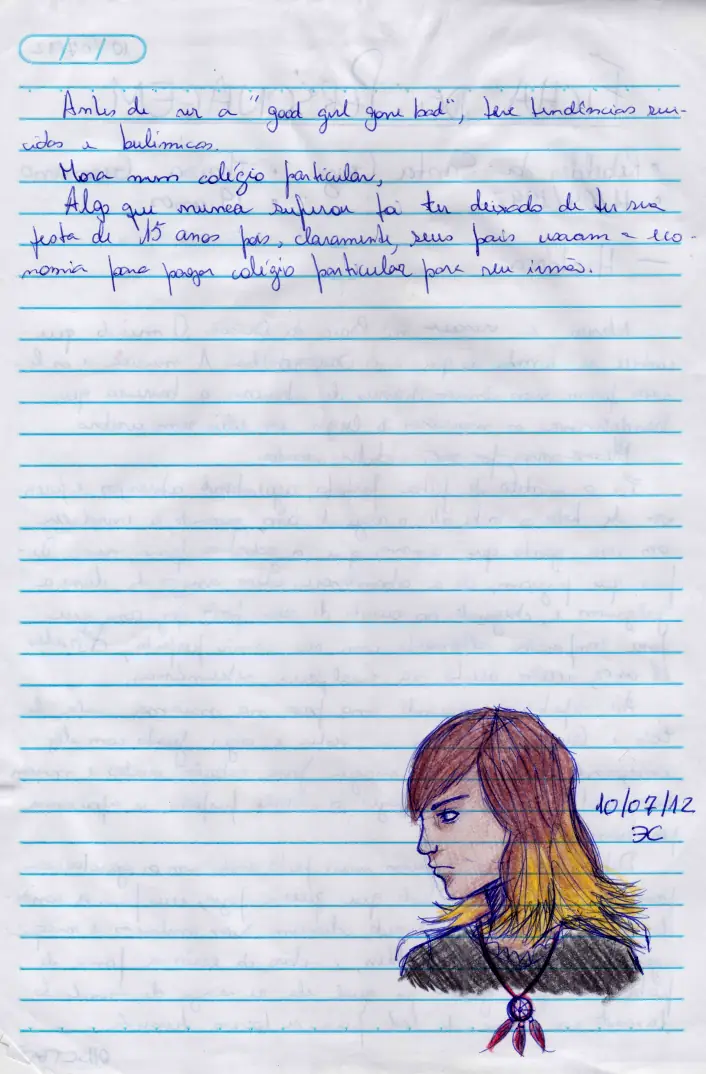 Antes de ser a "good girl gone bad", teve tendências sui-
cidas e bulímicas.
Mora num colégio particular,
Algo que nunca superou foi ter deixado de ter sua
festa de 15 anos pois, claramente, seus pais usaram a eco-
nomia para pagar colégio particular para seu irmão.
10/07/12
ЭС